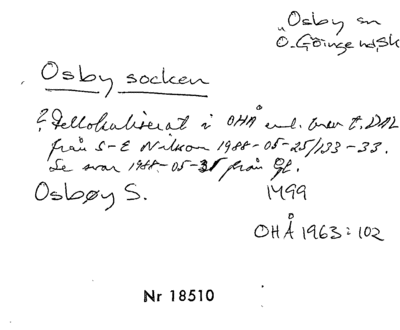 Osby sn
Ö. Göinge hd, Sk
Osby socken
? Fellokaliserat i OHÅ enl. brev t. DAL
från S-E Nilsson 1988-05-25/133-33.
Se svar 1988-05-31 från GH.
Osbøy S. 1499
OHÅ 1963:102
Nr 18510